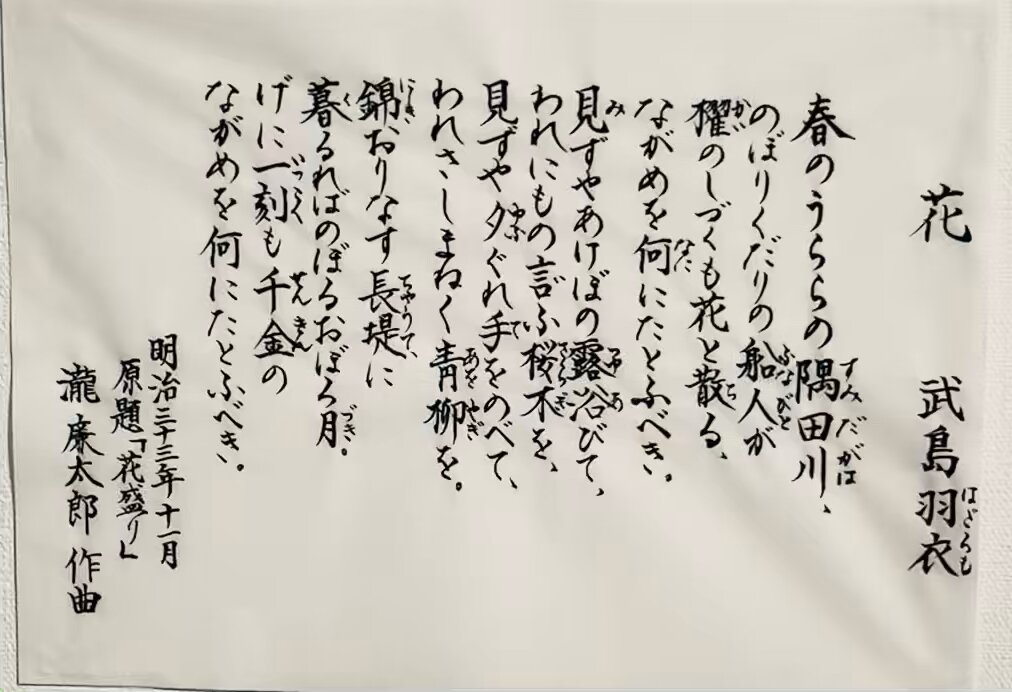 花　武島羽衣
春のうららの隅田川、
のぼりくだりの船人が
櫂のしづくも花と散る、
ながめを何にたとふべき。
見ずやあけぼの露浴びて、
われにもの言ふ桜木を、
見ずや夕ぐれ手をのべて、
われさしまねく青柳を。
錦おりなす長堤に
暮るればのぼるおぼろ月。
げに一刻も千金の
ながめを何にたとふべき。
明治三十三年十一月
原題「花盛り」
瀧廉太郎 作曲